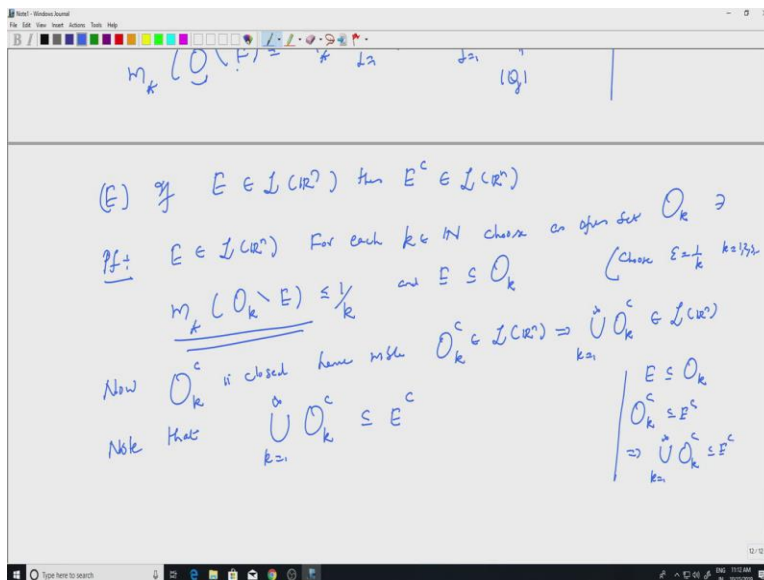 Note1 - Windows Journal
File Edit View Insert Actions Tools Help
m_* (O \ E) =
|Q_j|
(E) If E ∈ L(ℝⁿ) then E^c ∈ L(ℝⁿ)
Pf: E ∈ L(ℝⁿ) For each k ∈ IN choose an open set O_k ∋
m_* (O_k \ E) ≤ 1/k and E ⊆ O_k (choose ε = 1/k k=1,2,3,
Now O_k^c is closed hence mble O_k^c ∈ L(ℝⁿ) ⇒ ∪_{k=1}^∞ O_k^c ∈ L(ℝⁿ)
Note that ∪_{k=1}^∞ O_k^c ⊆ E^c
E ⊆ O_k
O_k^c ⊆ E^c
⇒ ∪_{k=1}^∞ O_k^c ⊆ E^c
12 / 12
Type here to search
ENG 11:12 AM